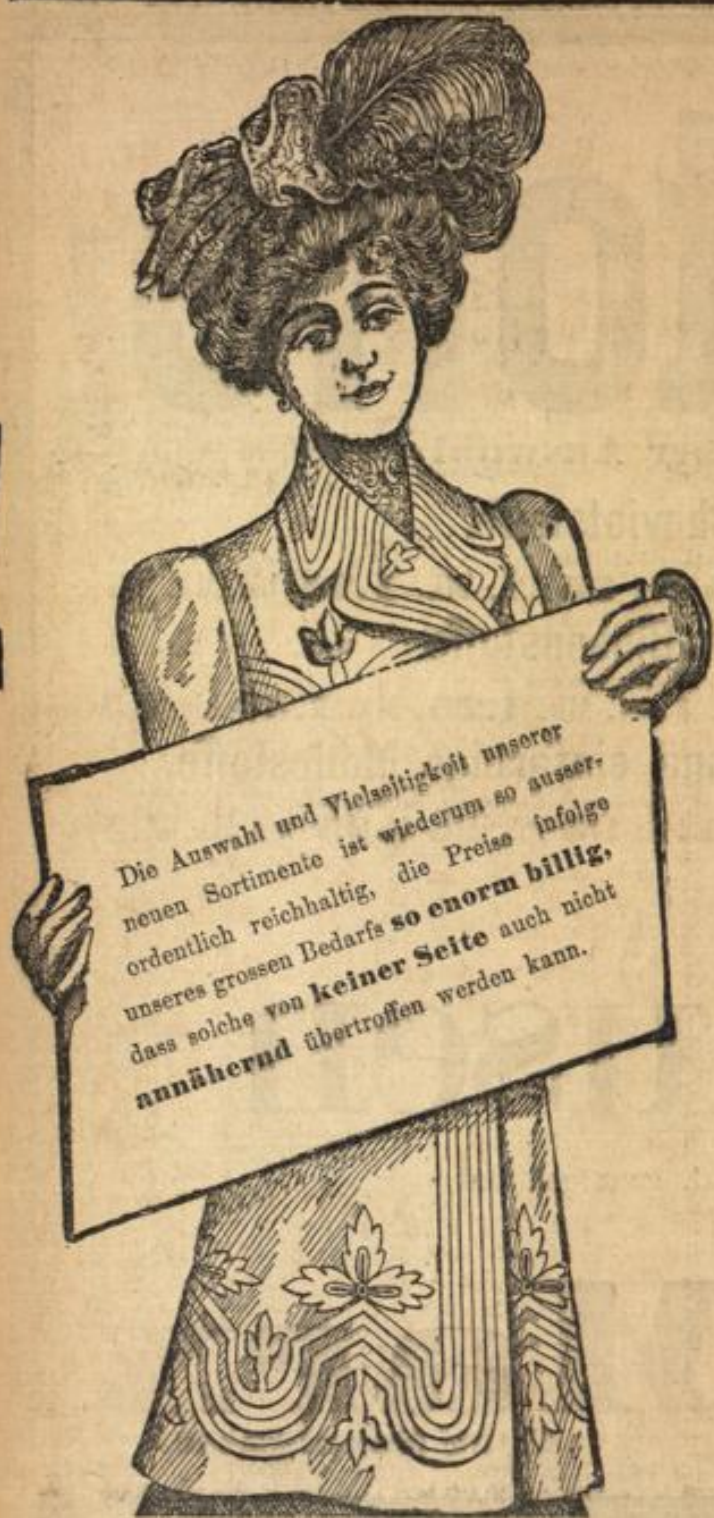 Die Auswahl und Vielseitigkeit unserer
neuen Sortimente ist wiederum so ausser-
ordentlich reichhaltig, die Preise infolge
unseres grossen Bedarfs so enorm billig,
dass solche von keiner Seite auch nicht
annähernd übertroffen werden kann.